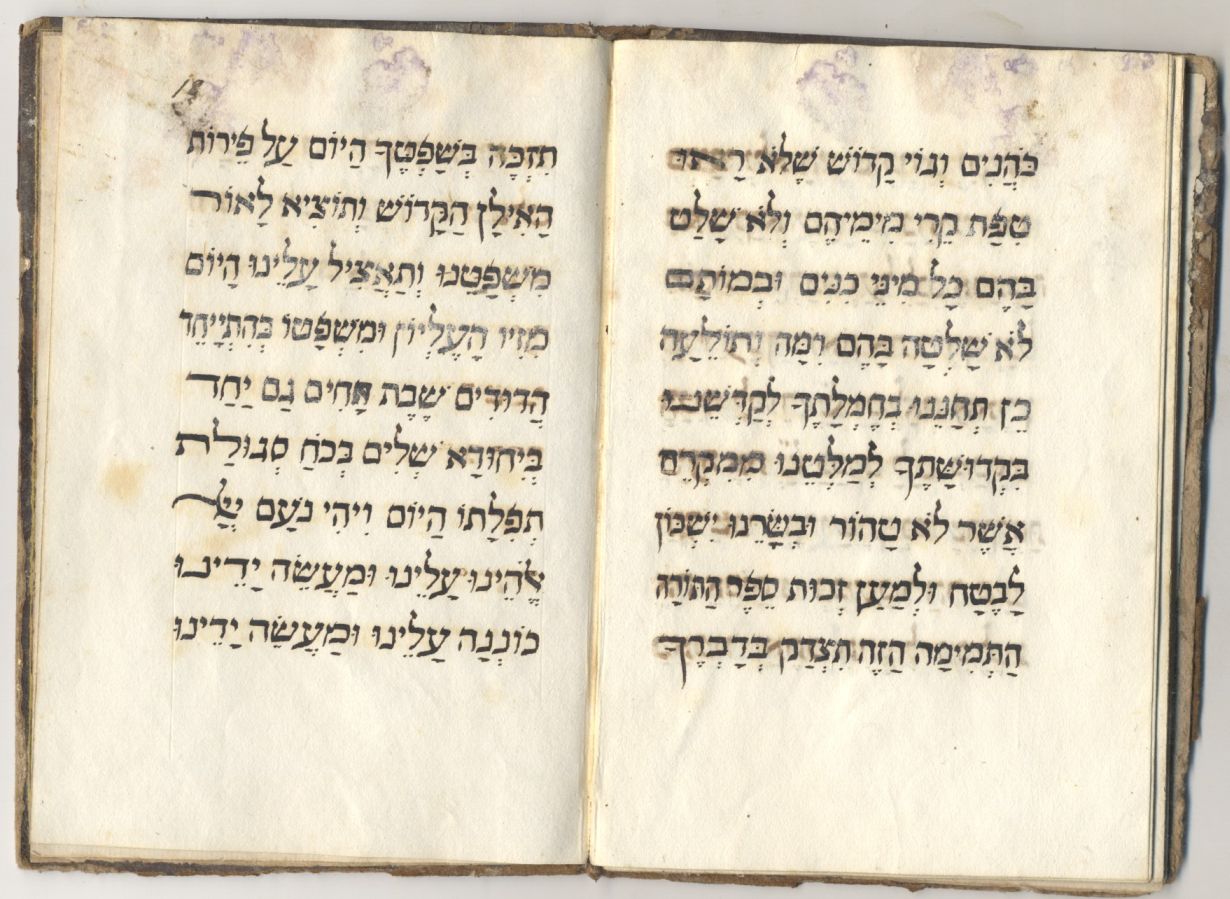 כֹּהֲנִים וְגוֹי קָדוֹשׁ שֶׁלֹּא רָאוּ
טִפַּת קֵרִי מִימֵיהֶם וְלֹא שָׁלַט
בָּהֶם כָּל מִינֵי כִנִּים וּבְמוֹתָם
לֹא שָׁלְטָה בָּהֶם רִמָּה וְתוֹלֵעָה
כֵּן תְּחָנֵּנוּ בְּחֶמְלָתֶךָ לְקַדְּשֵׁנוּ
בִּקְדוּשָּׁתֶךָ לְמַלְּטֵנוּ מִמִּקְרֵה
אֲשֶׁר לֹא טָהוֹר וּבְשָׂרֵנוּ יִשְׁכּוֹן
לָבֶטַח וּלְמַעַן זְכוּת סֵפֶר הַתּוֹרָה
הַתְּמִימָה הַזֶּה תִּצְדַּק בְּדָבְרֶךָ
18
תִּזְכֶּה בְּשָׁפְטֶךָ הַיּוֹם עַל פֵּירוֹת
הָאִילָן הַקָּדוֹשׁ וְתוֹצִיא לָאוֹר
מִשְׁפָּטֵנוּ וְתַאֲצִיל עָלֵינוּ הַיּוֹם
מִזִּיו הָעֶלְיוֹן וּמִשְׁפָּטוֹ כְּהִתְיַיחֵד
הַדּוֹדִים שֶׁבֶת אַחִים גַּם יַחַד
בְּיִחוּדָא שְׁלִים בְּכֹחַ סְגוּלַת
תְּפִלָּתוֹ הַיּוֹם וִיהִי נֹעַם יְיָ
אֱלֹהֵינוּ עָלֵינוּ וּמַעֲשֵׂה יָדֵינוּ
כּוֹנְנָה עָלֵינוּ וּמַעֲשֵׂה יָדֵינוּ